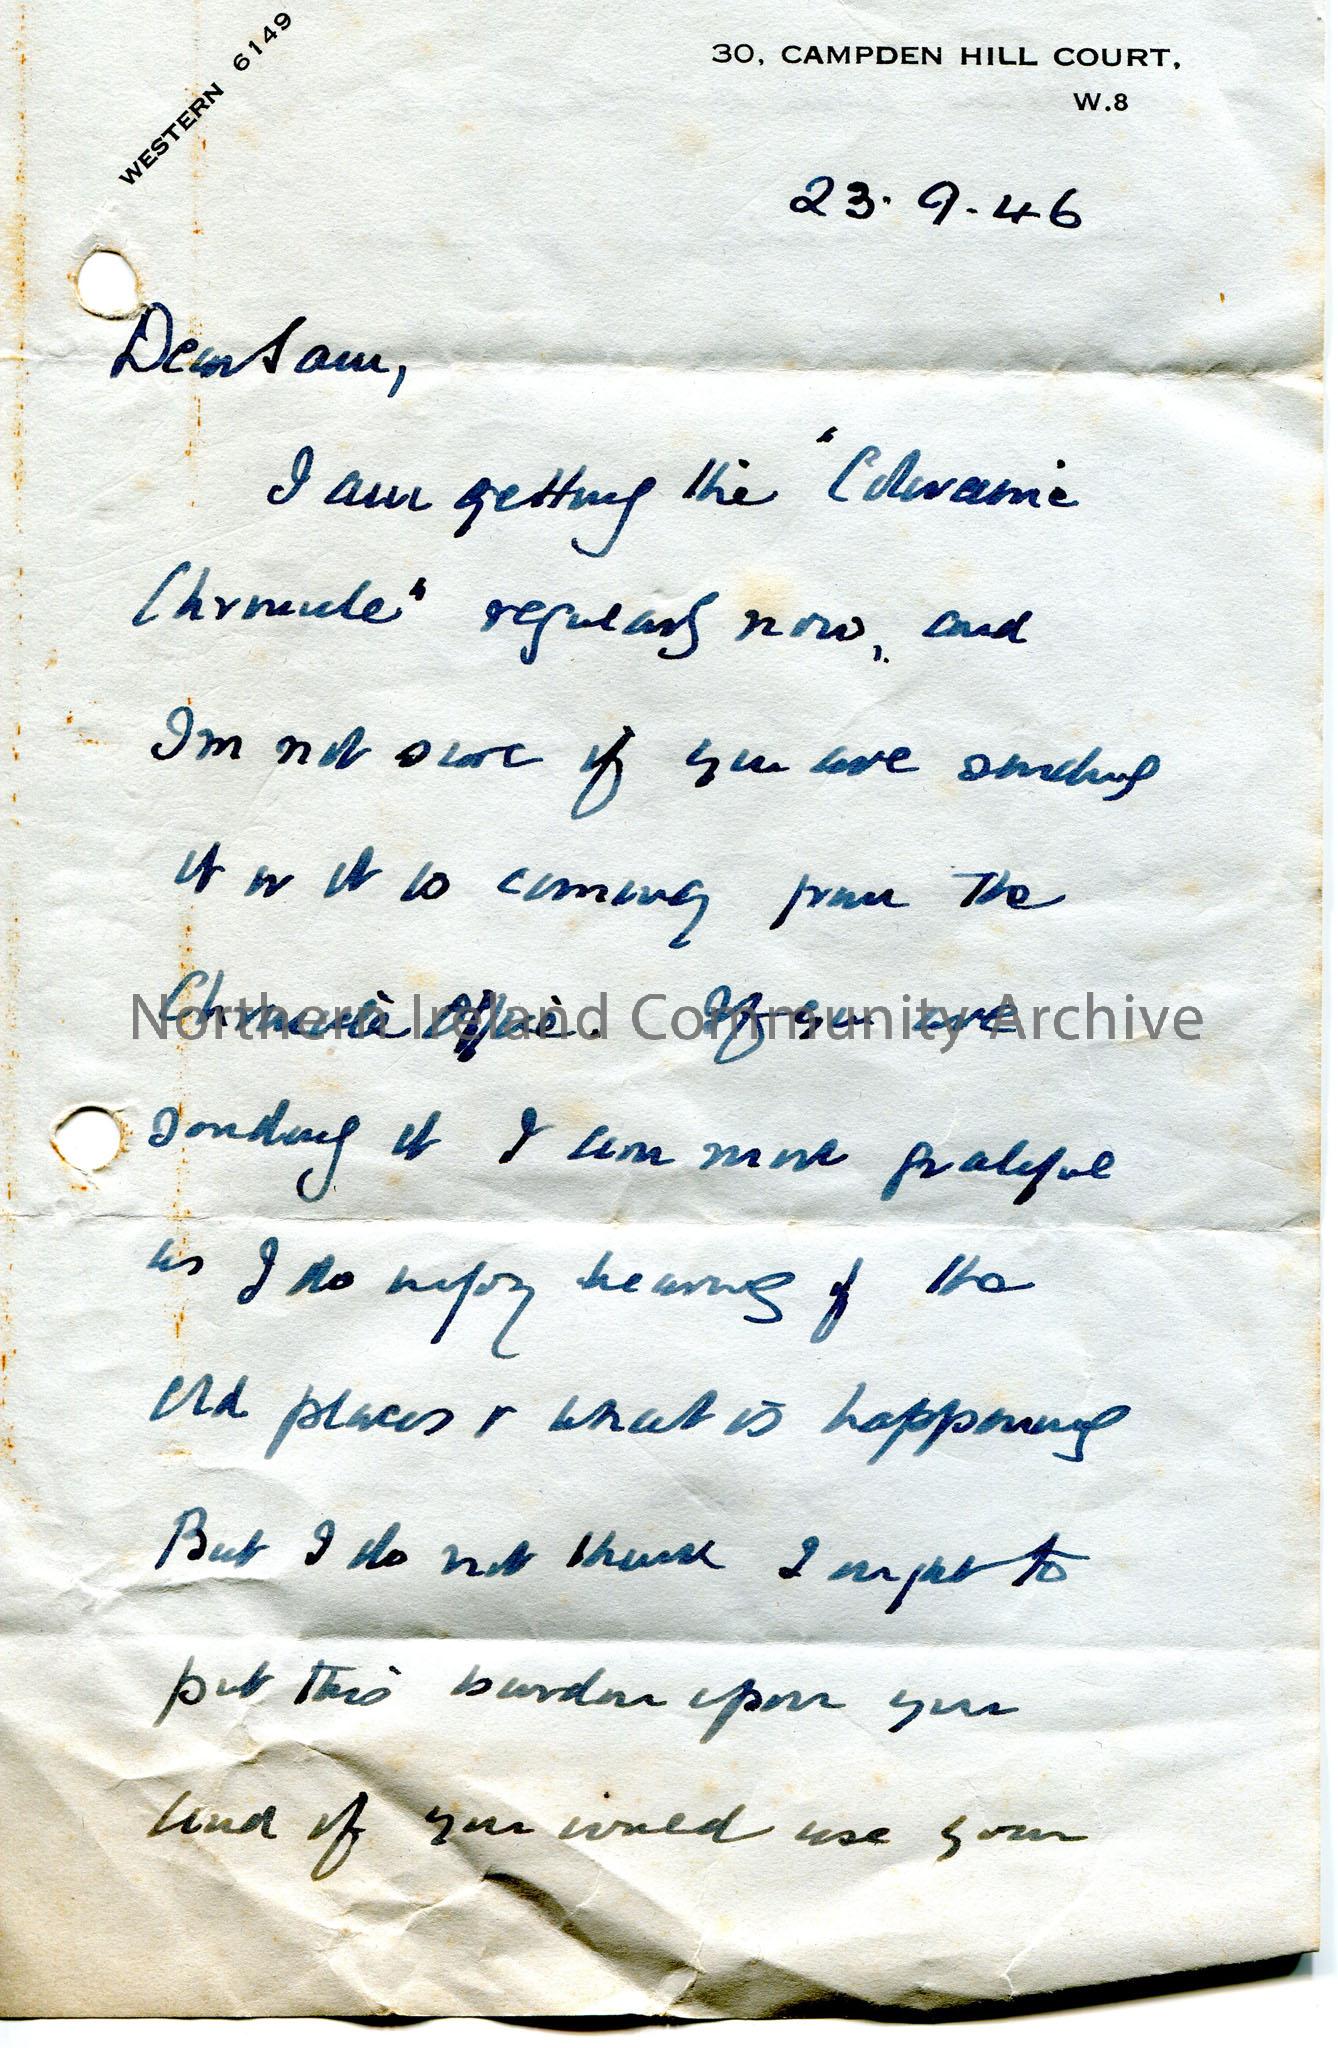 WESTERN 6149
30, CAMPDEN HILL COURT,
W.8
23.9.46
Dear Sam,
I am getting the "Coleraine
Chronicle" regularly now, and
I'm not sure if you are sending
it or it is coming from the
Chronicle Office. If you are
sending it I am most grateful
as I do enjoy hearing of the
old places & what is happening
But I do not think I ought to
put this burden upon you
and if you would use your
Northern Ireland Community Archive